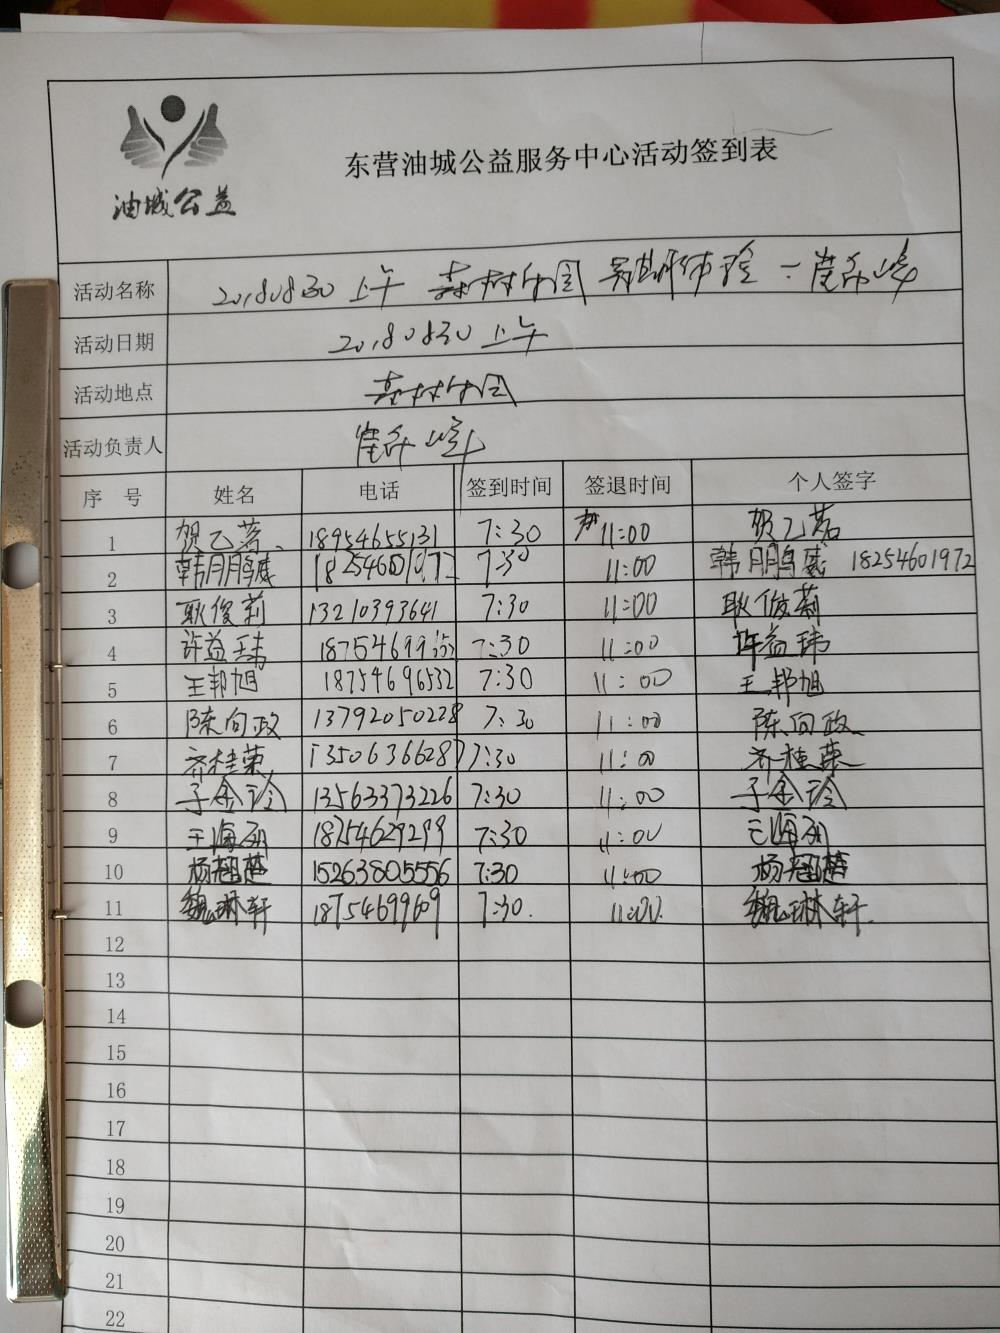 油城公益
东营油城公益服务中心活动签到表
活动名称 20180830 上午 森林乐园
活动日期 20180830 上午
活动地点 森林乐园
活动负责人
序 号 姓名 电话 签到时间 签退时间 个人签字
1 贺乙茗 18954655131 7:30 11:00 贺乙茗
2 韩鹏威 18254601972 7:30 11:00 韩鹏威 18254601972
3 耿俊莉 13210393641 7:30 11:00 耿俊莉
4 许益玮 7:30 11:00 许益玮
5 王邦旭 18754696532 7:30 11:00 王邦旭
6 陈向政 13792050228 7:30 11:00 陈向政
7 齐桂荣 13506366287 7:30 11:00 齐桂荣
8 于金玲 13563373226 7:30 11:00 于金玲
9 18754629299 7:30 11:00
10 15263805556 7:30 11:00
11 魏琳轩 18754699609 7:30. 11:00. 魏琳轩.
12
13
14
15
16
17
18
19
20
21
22